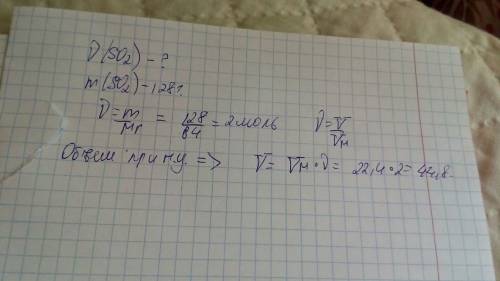 ν(SO₂) - ?
m(SO₂) - 128 г.
ν = m/Mr = 128/64 = 2 моль   ν = V/Vм
Объем => V = Vм • ν = 22,4 • 2 = 44,8